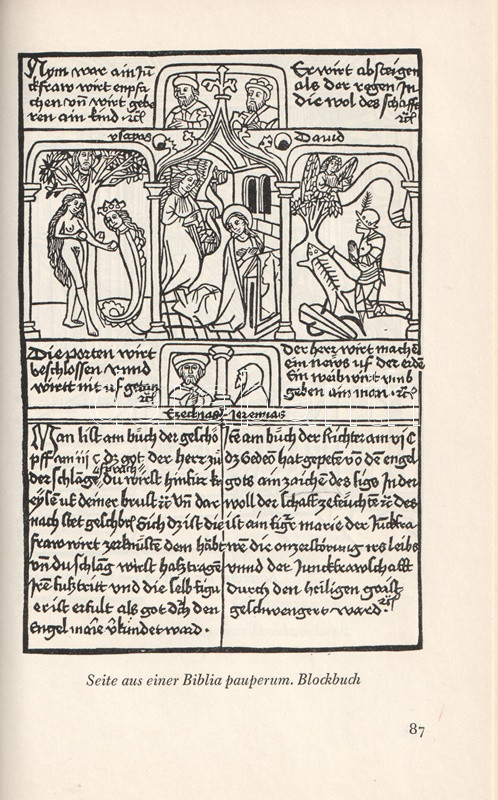 Nym war ain Jū
ckfraw wirt enpfa
chen vn̄ wirt gebe
ren ain kind ·
Er wirt absteigen
als der regen In
die wol des schaffs
ysayas
David
Die porten wirt
beschlossen vnnd
wirtt nit uf getan
der herz wirt machē
ein news uf der erde
Ein weib wirt vmb
geben ain man ·
Ezechias Jeremias
Man list am bůch der geschö
pff am iij c dz got der herz zů
der schlāge sprach du wirst hinfür kr
nach stet geschrbē Sich dz ist die
fraw wirt zerknüsten dem häbt
vn̄ du schlāg wirst haß tragē
Irem fußtritt vnd die selb figu
er ist erfult als got dch den
Engel marie v̄kündet ward ·
Ite am bůch der Richter am vi c
dz Gedeō hat gepetē vō dē engel
gots ain zaichē des sigs In der
woll der schaff
ist ain figr marie der Juckfra
vnnd der Junckfrawschafft
durch den heiligen gaist
geschwengert ward
Seite aus einer Biblia pauperum. Blockbuch
87